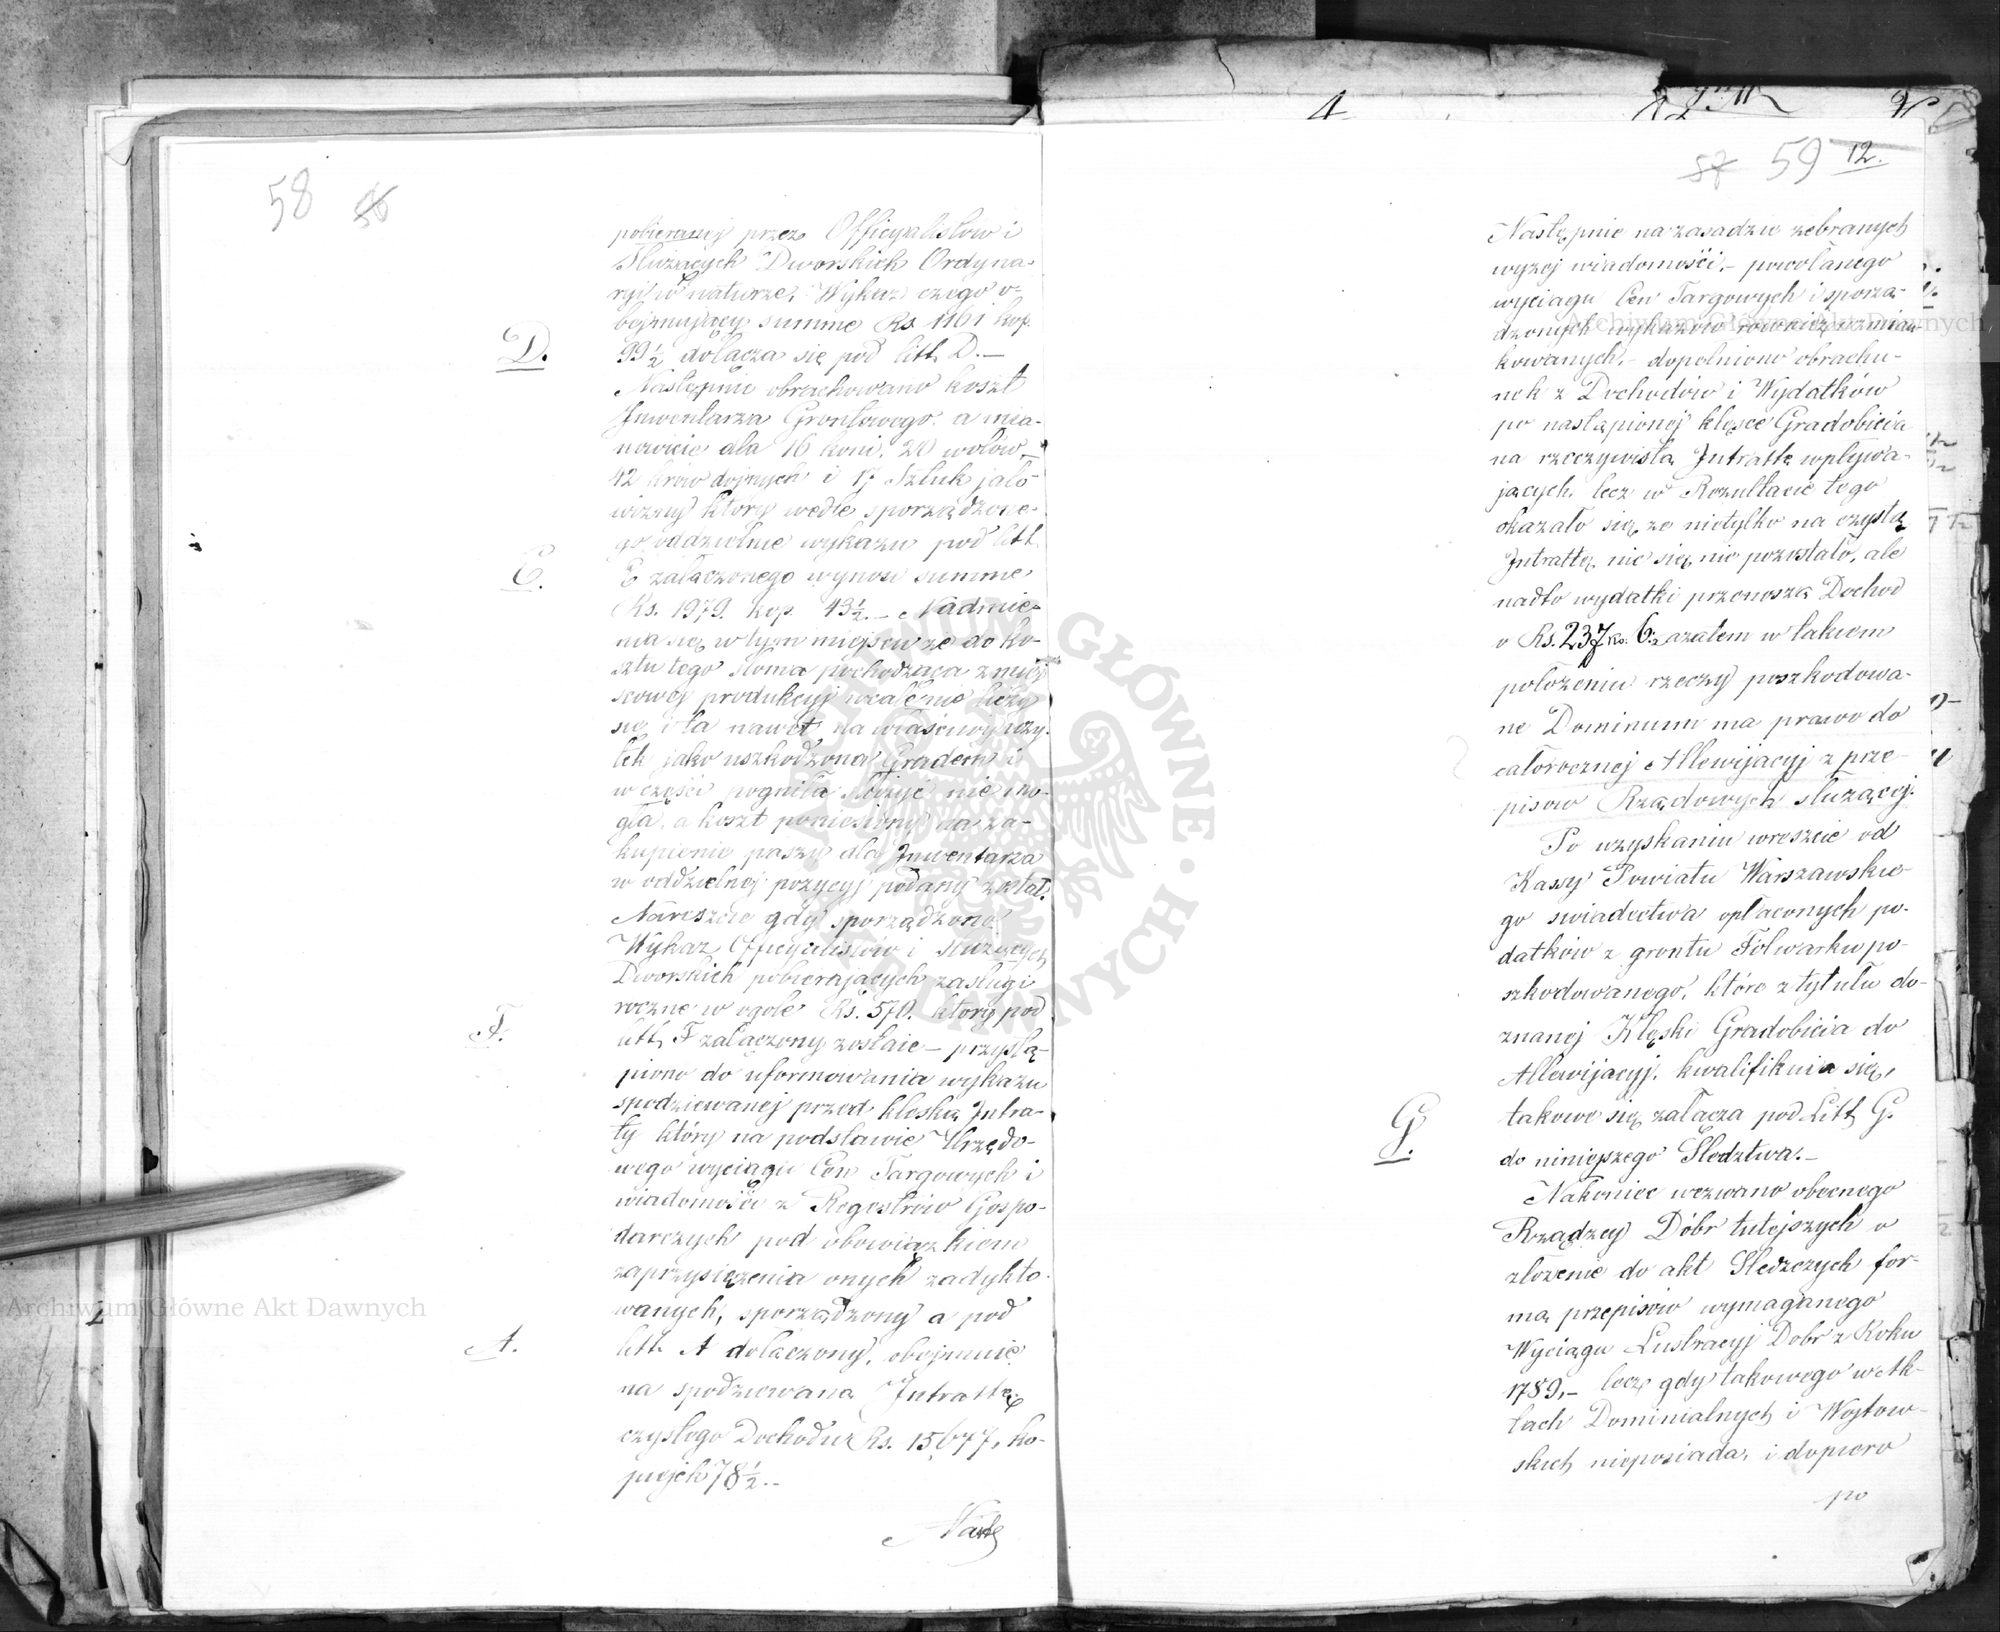 58 56
pobieranej przez Officyalistów i
Służących Dworskich Ordyna-
ryi w naturze, Wykaz czego o-
bejmujący summę Rs 1161 kop.
D.
99½ dołącza się pod litt. D.—
Następnie obrachowano koszt
Inwentarza Grontowego, a mia-
nowicie dla 16 koni, 20 wołów,—
42 krów dojnych i 17 Sztuk jało-
wizny który wedle sporządzone-
go oddzielnie wykazu pod litt.
E.
E załączonego wynosi summę
Rs. 1979. kop. 43½.— Nadmie-
nia się w tym miejscu że do ko-
sztu tego słoma pochodząca z miej-
scowej produkcyj wcale nie liczy
się i ta nawet na właściwy uży-
tek jako uszkodzona Gradem i
w części pogniła służyć nie mo-
gła, a koszt poniesiony na za-
kupienie paszy dla Inwentarza
w oddzielnej pozycyj podany został.
Nareszcie gdy sporządzono
Wykaz Officyalistów i służących
Dworskich pobierających zasługi
roczne w ogóle Rs. 570. który pod
F.
litt. F załączony zostaie— przystą-
piono do uformowania wykazu
spodziewanej przed klęską Intra-
ty który na podstawie Urzędo-
wego wyciągu Cen Targowych i
wiadomości z Regestrów Gospo-
darczych pod obowiązkiem
zaprzysiężenia onych zadykto-
wanych, sporządzony a pod
A.
litt. A dołączony, obejmuie
na spodziewaną Intrattę
czystego Dochodu Rs. 15677, ko-
piejek 78½.—
Nastę
57 59 12.
Następnie na zasadzie zebranych
wyżej wiadomości,— powołanego
wyciągu Cen Targowych i sporzą-
dzonych wykazów również wzmian-
kowanych,— dopełniono obrachu-
nek z Dochodów i Wydatków
po nastąpionej klęsce Gradobicia
na rzeczywistą Intrattę wpływa-
jących, lecz w Rezultacie tego
okazało się, że nietylko na czystą
Intrattę nic się nie pozostało, ale
nadto wydatki przenoszą Dochod
o Rs. 237 ko. 6½ azatem w takiem
położeniu rzeczy poszkodowa-
ne Dominium ma prawo do
całorocznej Allewijacyj z prze-
pisów Rządowych służącej.
Po uzyskaniu wreszcie od
Kassy Powiatu Warszawskie-
go świadectwa opłaconych po-
datków z grontu Folwarku po-
szkodowanego, które z tytułu do-
znanej Klęski Gradobicia do
Allewijacyj, kwalifikuia się,
takowe się załącza pod Litt G.
G.
do niniejszego Śledztwa.—
Nakoniec wezwano obecnego
Rządzcy Dóbr tutejszych o
złożenie do akt Śledczych for-
mą przepisów wymaganego
Wyciągu Lustracyj Dobr z Roku
1789,— lecz gdy takowego w Ak-
tach Dominialnych i Wójtow-
skich nieposiada, i dopiero
po
Archiwum Główne Akt Dawnych
Archiwum Główne Akt Dawnych
ARCHIWUM GŁÓWNE AKT DAWNYCH